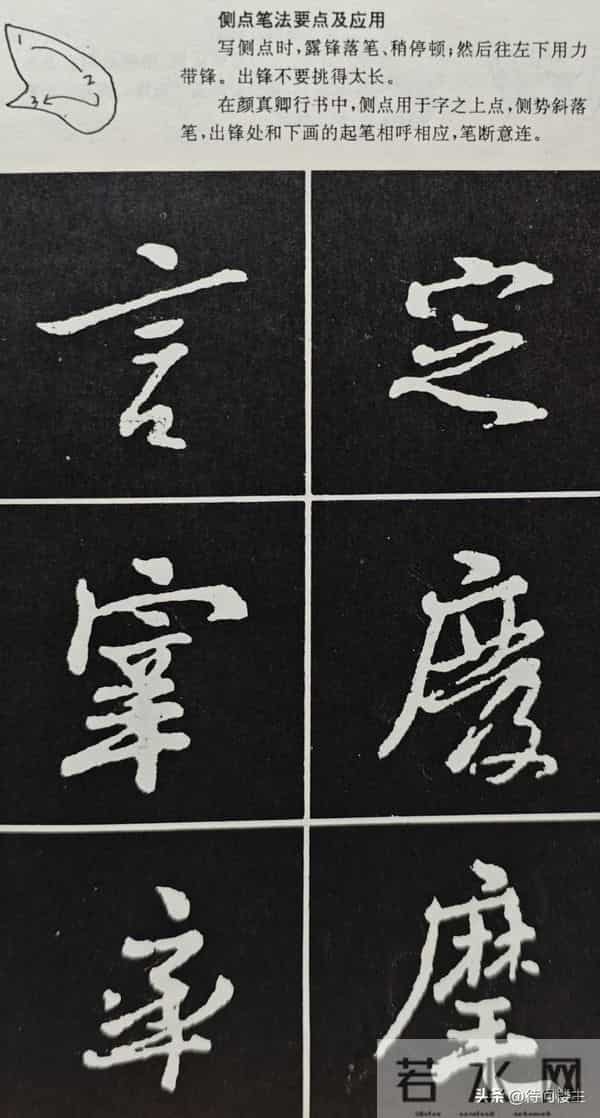 侧点笔法要点及应用
写侧点时,露锋落笔、稍停顿;然后往左下用力
带锋。出锋不要挑得太长。
在颜真卿行书中,侧点用于字之上点,侧势斜落
笔,出锋处和下画的起笔相呼相应,笔断意连。
1
2
3
言 定
宰
率
若水网
头条 @待问楼主